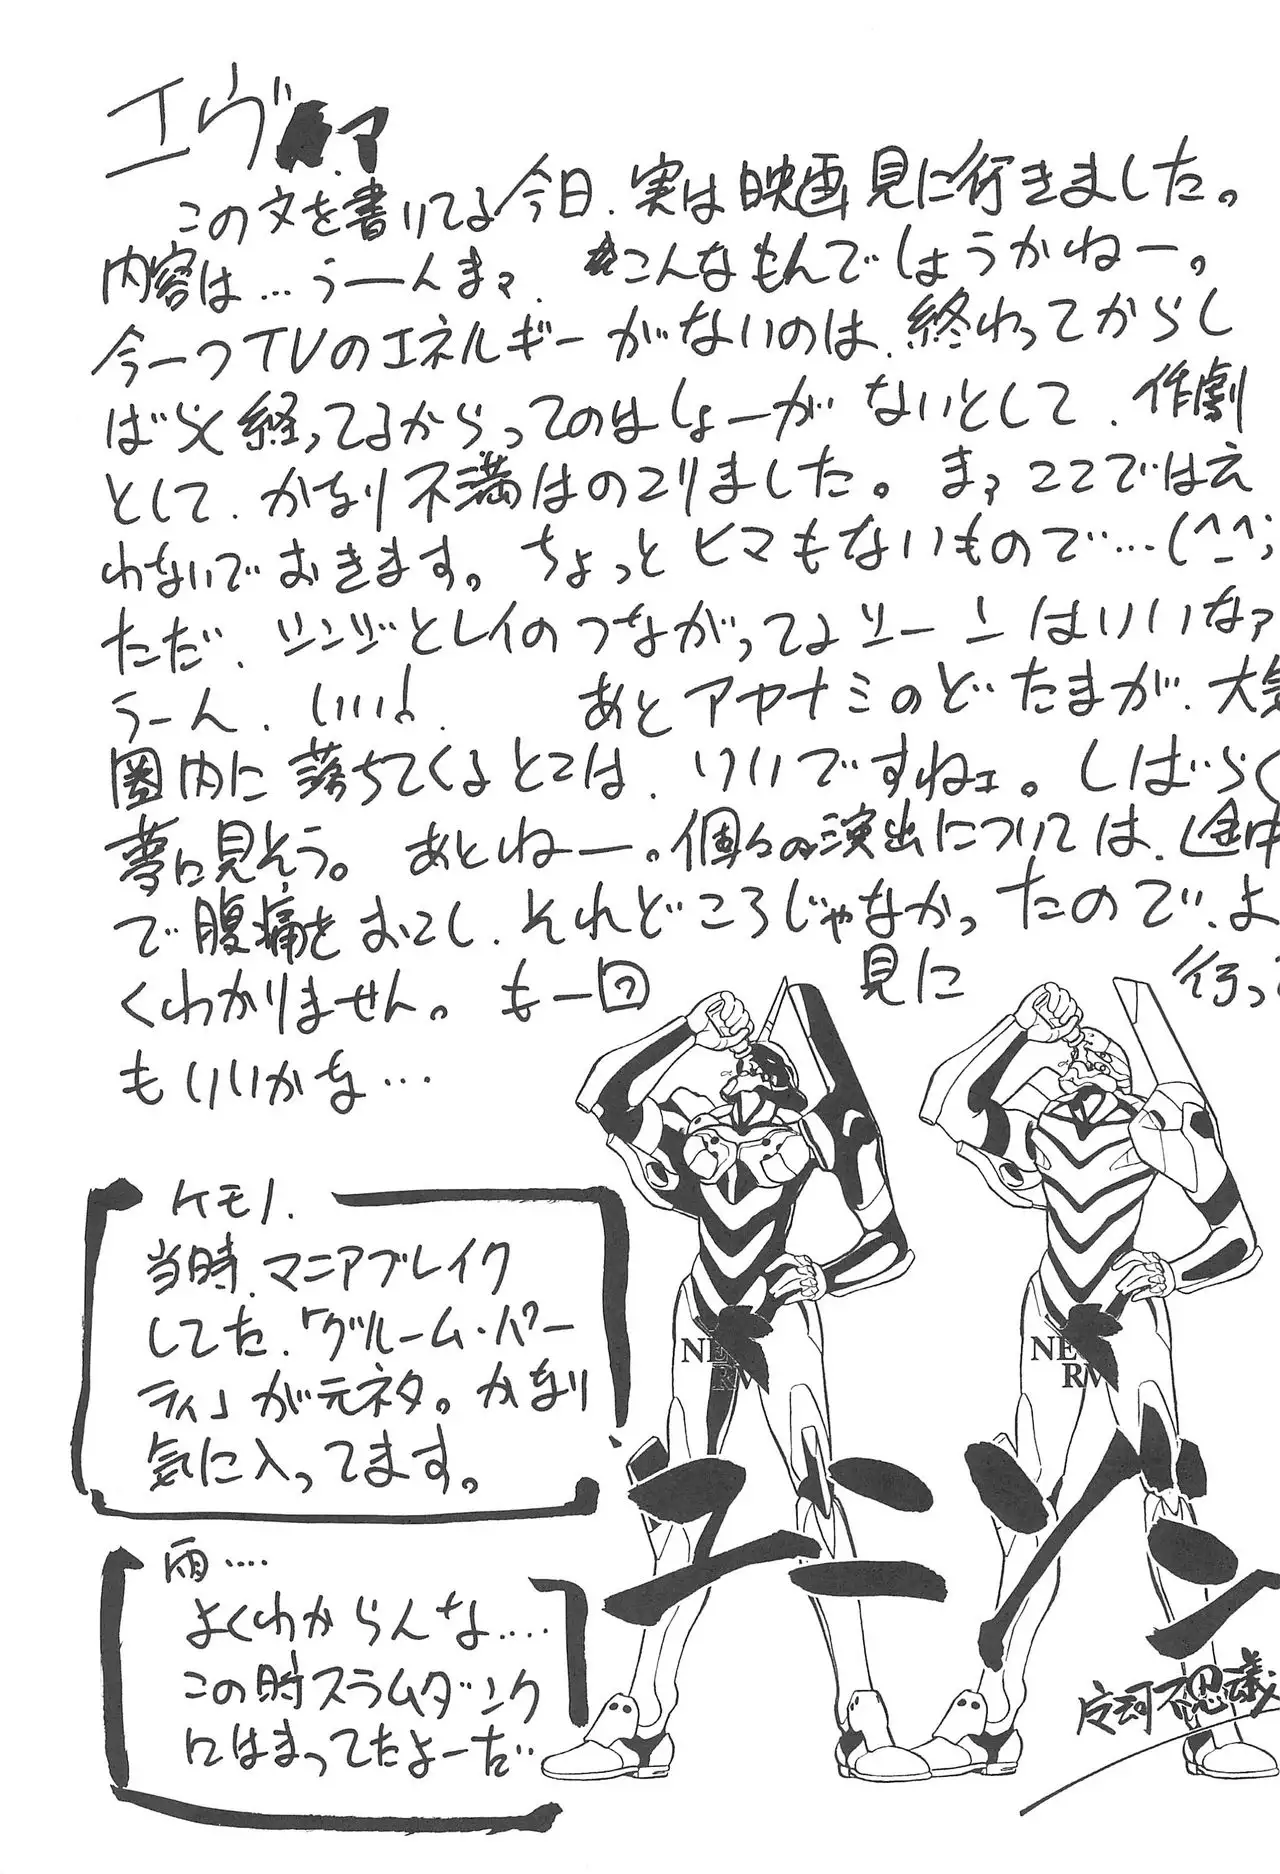 エヴァ
この文を書いてる今日、実は映画見に行きました。
内容は…うーんまァ、こんなもんでしょうかねー。
今一つTVのエネルギーがないのは、終わってからし
ばらく経ってるからってのはしょーがないとして、作劇
として、かなり不満はのこりました。まァココではえ
わないでおきます。ちょっとヒマもないもので…(^_^;
ただ、シンジとレイのつながってるシーンはいいなァ
うーん、いい!、あとアヤナミのどたまが、大気
圏内に落ちてくるとこは、いいですねェ。しばらく
夢に見そう。あとねー。個々の演出については、途中
で腹痛をおこし、それどころじゃなかったので、よ
くわかりません。も一回見に行って
もいいかな…
ケモノ、
当時、マニアブレイク
してた、「グルーム・パー
ティ」が元ネタ。かなり
気に入ってます。
雨‥‥
よくわからんな‥‥
この時スラムダンク
にはまってたよーだ…
NE
RV
NE
RV
不思議